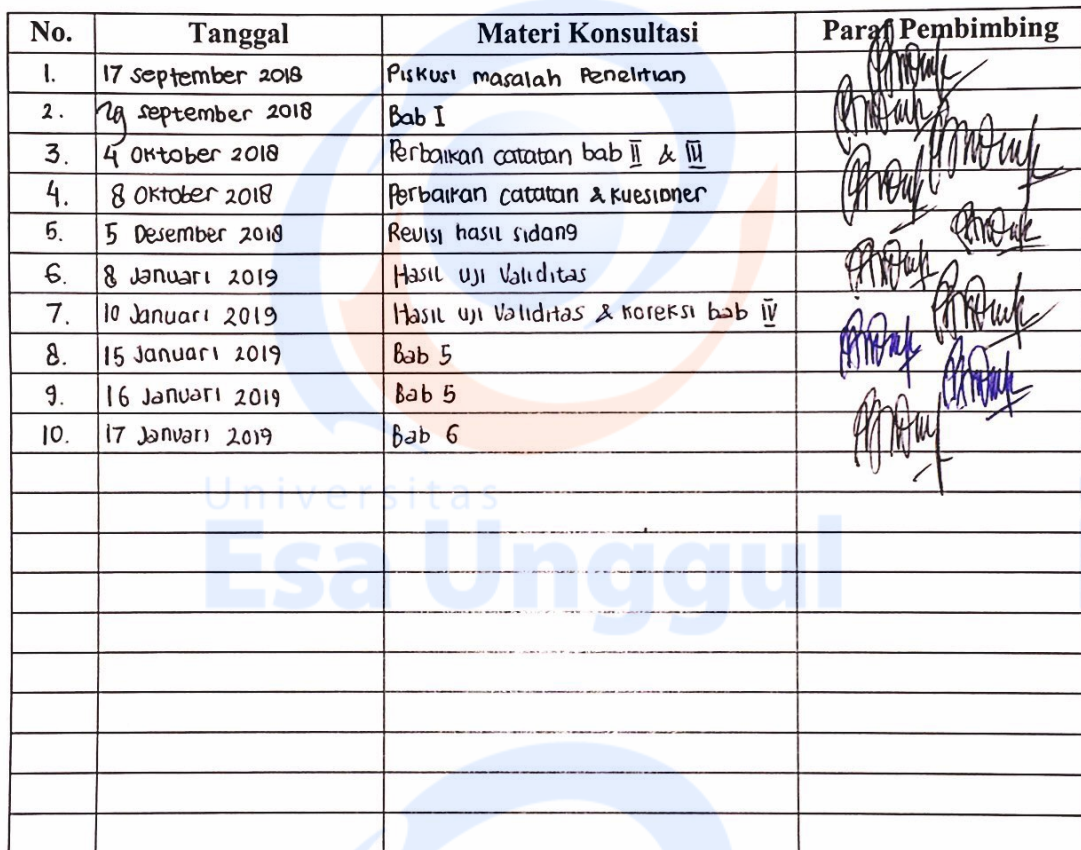 No. Tanggal Materi Konsultasi Paraf Pembimbing
1. 17 September 2018 Diskusi masalah Penelitian
2. 29 September 2018 Bab I
3. 4 Oktober 2018 Perbaikan catatan bab II & III
4. 8 Oktober 2018 Perbaikan catatan & Kuesioner
5. 5 Desember 2018 Revisi hasil sidang
6. 8 Januari 2019 Hasil uji Validitas
7. 10 Januari 2019 Hasil uji Validitas & koreksi bab IV
8. 15 Januari 2019 Bab 5
9. 16 Januari 2019 Bab 5
10. 17 Januari 2019 Bab 6
Universitas
Esa Unggul